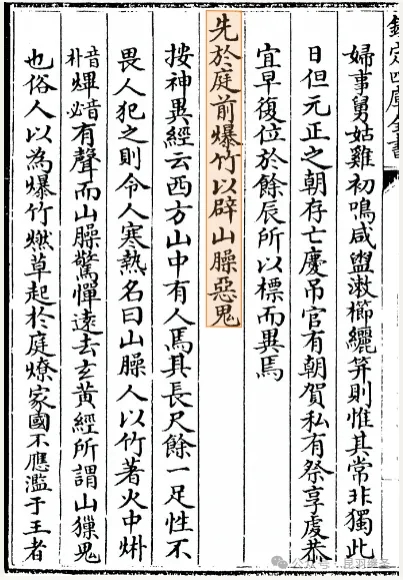 欽定四庫全書
婦事舅姑雞初鳴咸盥漱櫛纚笄則惟其常非獨此
日但元正之朝存亡慶吊官有朝賀私有祭享虔恭
宜早復位於餘辰所以標而異焉
先於庭前爆竹以辟山臊惡鬼
按神異經云西方山中有人焉其長尺餘一足性不
畏人犯之則令人寒熱名曰山臊人以竹著火中烞
音朴熚音必有聲而山臊驚憚遠去玄黃經所謂山𤢖鬼
也俗人以為爆竹燃草起於庭燎家國不應濫于王者
公众号·昆羽继圣